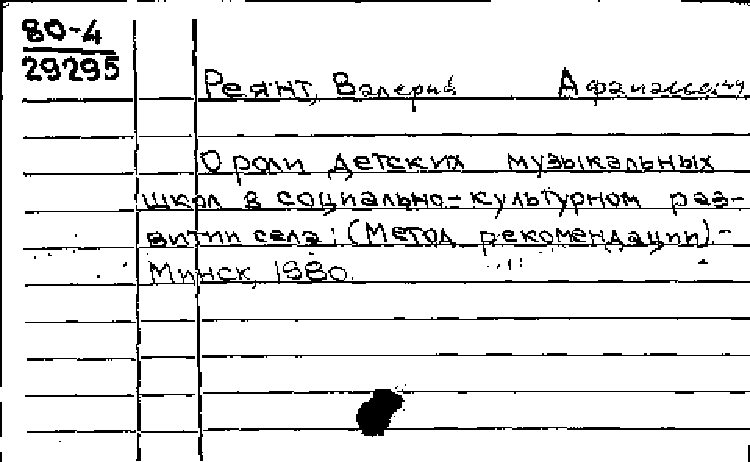 80-4
29295
Реянт, Валерий
О роли детских музыкальных
школ в социально-культурном раз-
витии села: (Метод. рекомендации).-
Минск, 1980.